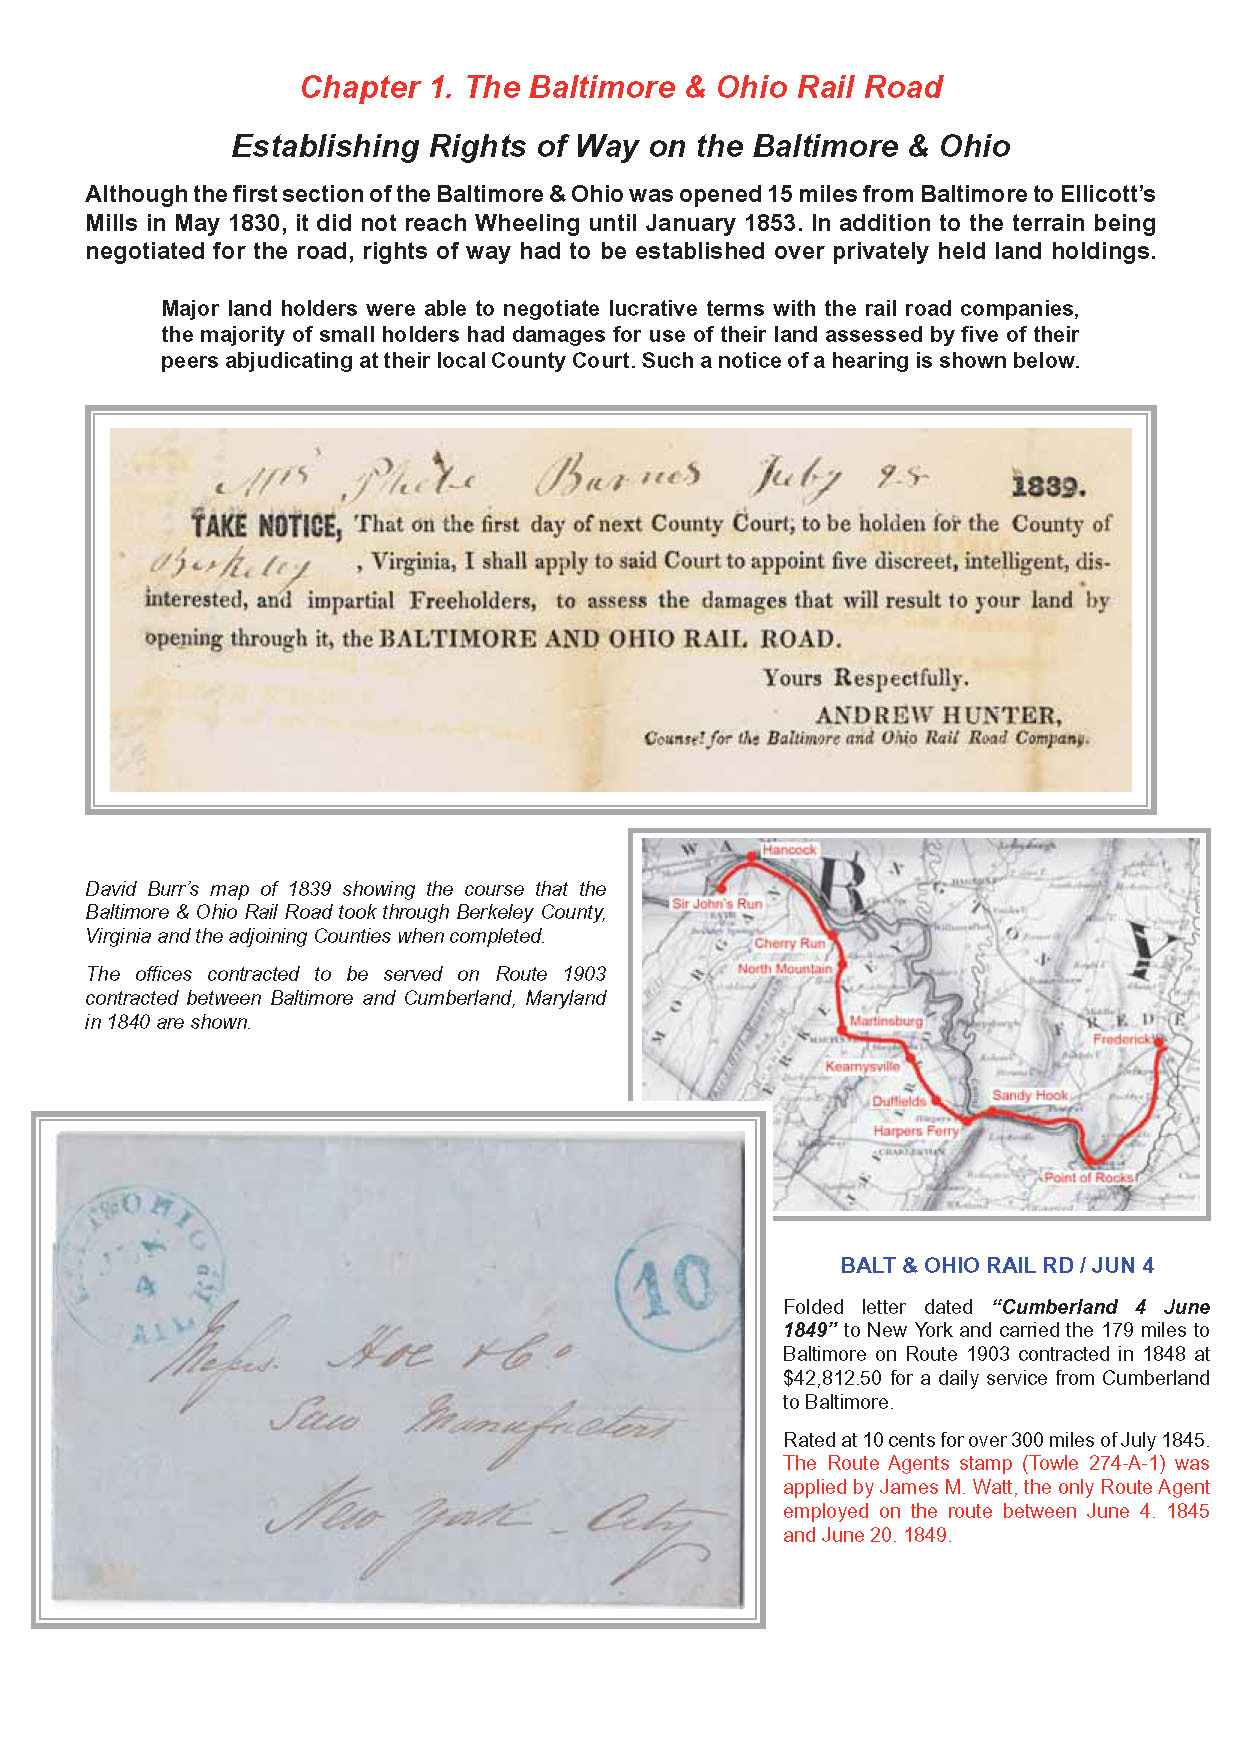 Chapter 1. The Baltimore & Ohio Rail Road
Establishing Rights of Way on the Baltimore & Ohio
Although the first section of the Baltimore & Ohio was opened 15 miles from Baltimore to Ellicott's
Mills in May 1830, it did not reach Wheeling until January 1853. In addition to the terrain being
negotiated for the road, rights of way had to be established over privately held land holdings.
Major land holders were able to negotiate lucrative terms with the rail road companies,
the majority of small holders had damages for use of their land assessed by five of their
peers abjudicating at their local County Court. Such a notice of a hearing is shown below.
Mrs Phebe Barnes July 28 1839.
TAKE NOTICE, That on the first day of next County Court, to be holden for the County of
Berkeley, Virginia, I shall apply to said Court to appoint five discreet, intelligent, dis-
interested, and impartial Freeholders, to assess the damages that will result to your land by
opening through it, the BALTIMORE AND OHIO RAIL ROAD.
Yours Respectfully.
ANDREW HUNTER,
Counsel for the Baltimore and Ohio Rail Road Company.
David Burr's map of 1839 showing the course that the
Baltimore & Ohio Rail Road took through Berkeley County,
Virginia and the adjoining Counties when completed.
The offices contracted to be served on Route 1903
contracted between Baltimore and Cumberland, Maryland
in 1840 are shown.
Hancock
Sir John's Run
Cherry Run
North Mountain
Martinsburg
Kearnysville
Duffields
Harpers Ferry
Sandy Hook
Point of Rocks
Frederick
CHARLESTOWN
BALT & OHIO R RD
4
10
Messrs. Hoe & Co.
Saw Manufacters
New York City
BALT & OHIO RAIL RD / JUN 4
Folded letter dated “Cumberland 4 June
1849” to New York and carried the 179 miles to
Baltimore on Route 1903 contracted in 1848 at
$42,812.50 for a daily service from Cumberland
to Baltimore.
Rated at 10 cents for over 300 miles of July 1845.
The Route Agents stamp (Towle 274-A-1) was
applied by James M. Watt, the only Route Agent
employed on the route between June 4. 1845
and June 20. 1849.